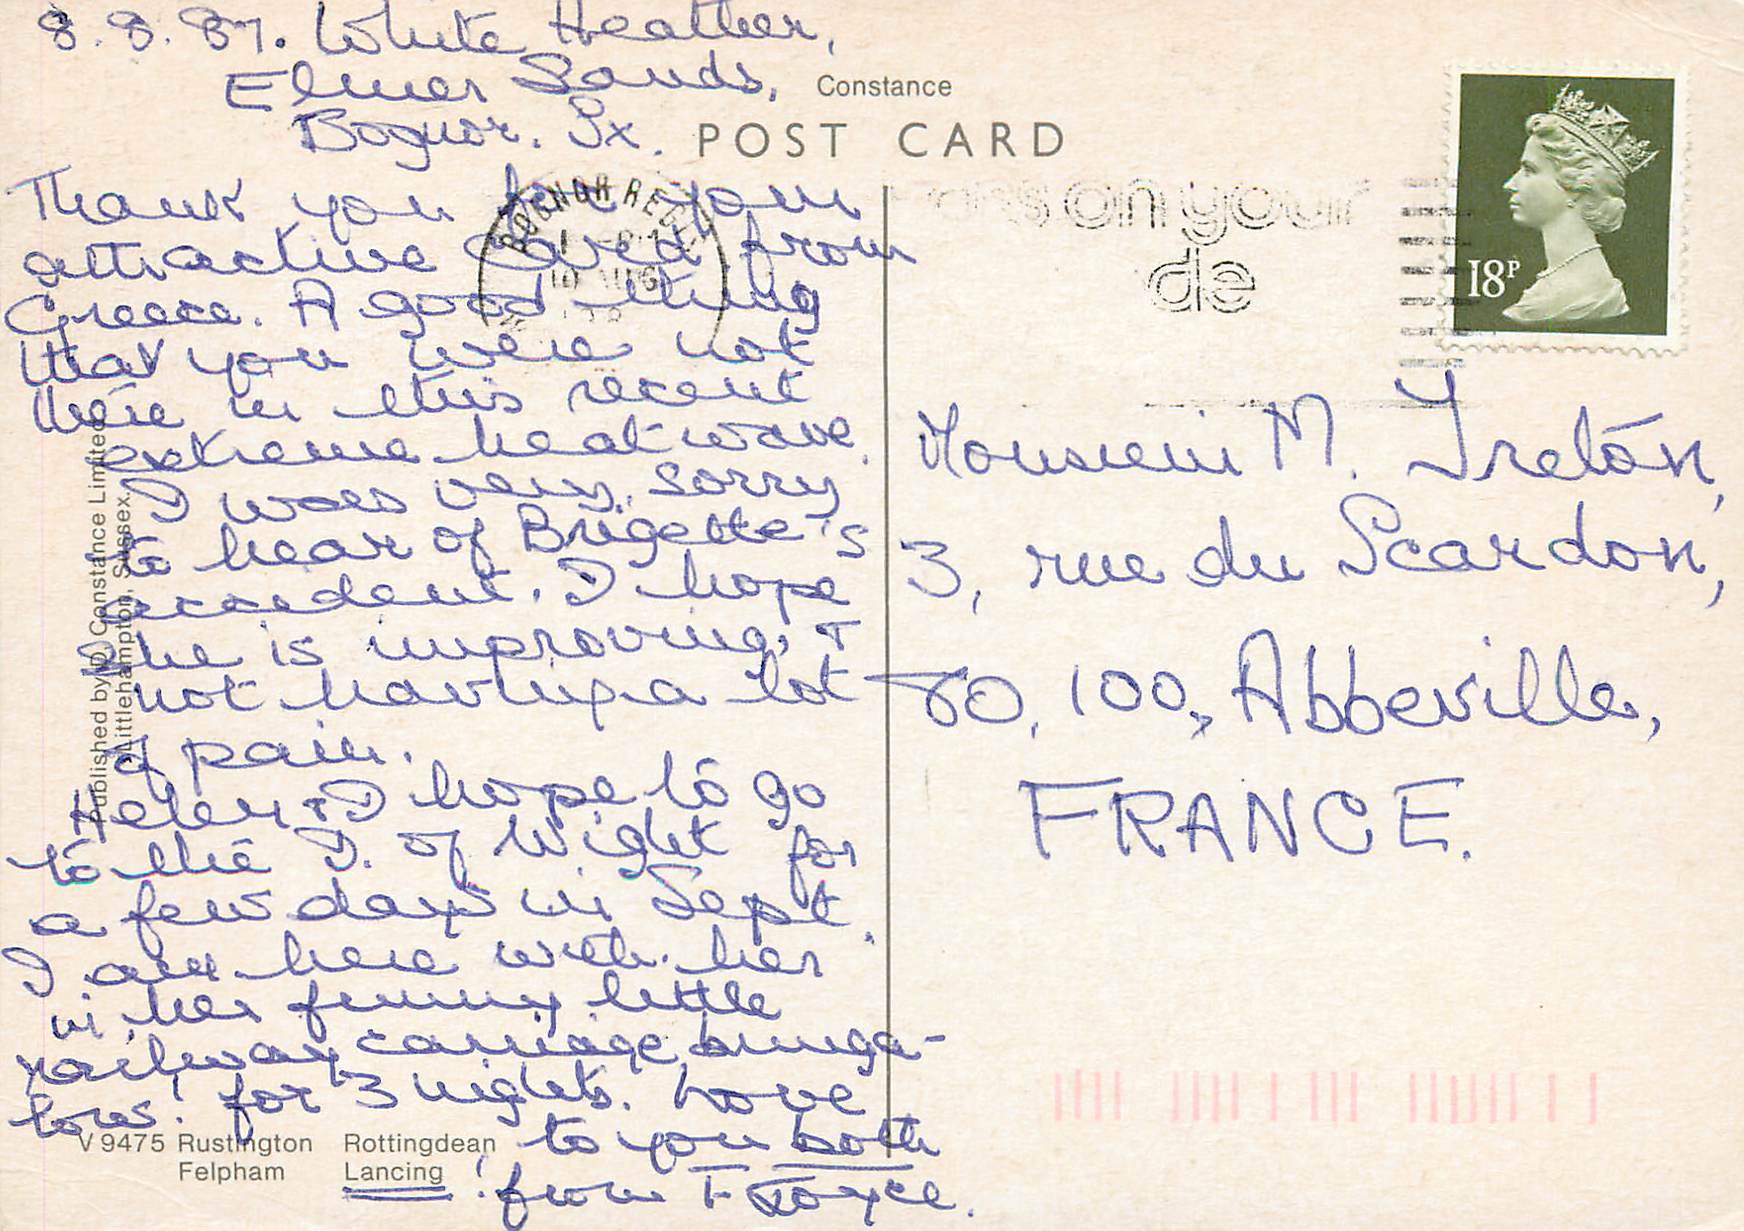 8.8.87. White Heather,
Elmer Sands,
Bognor. Sx.
Constance
POST CARD
Thank you for your
attractive card from
Greece. A good thing
that you were not
there in this recent
extreme heatwave.
I was very sorry
to hear of Brigette's
accident. I hope
she is improving, +
not having a lot
of pain.
Helen + I hope to go
to the I. of Wight for
a few days in Sept.
I am here with her
in her funny little
railway carriage bunga-
low! for 3 nights. Love
to you both
from Joyce.
BOGNOR REGIS
10 AUG
on your
de
18P
Monsieur M. Iretón,
3, rue du Scardon,
80,100, Abbeville,
FRANCE.
Published by D. Constance Limited
Littlehampton, Sussex.
V9475 Rustington Rottingdean
Felpham Lancing